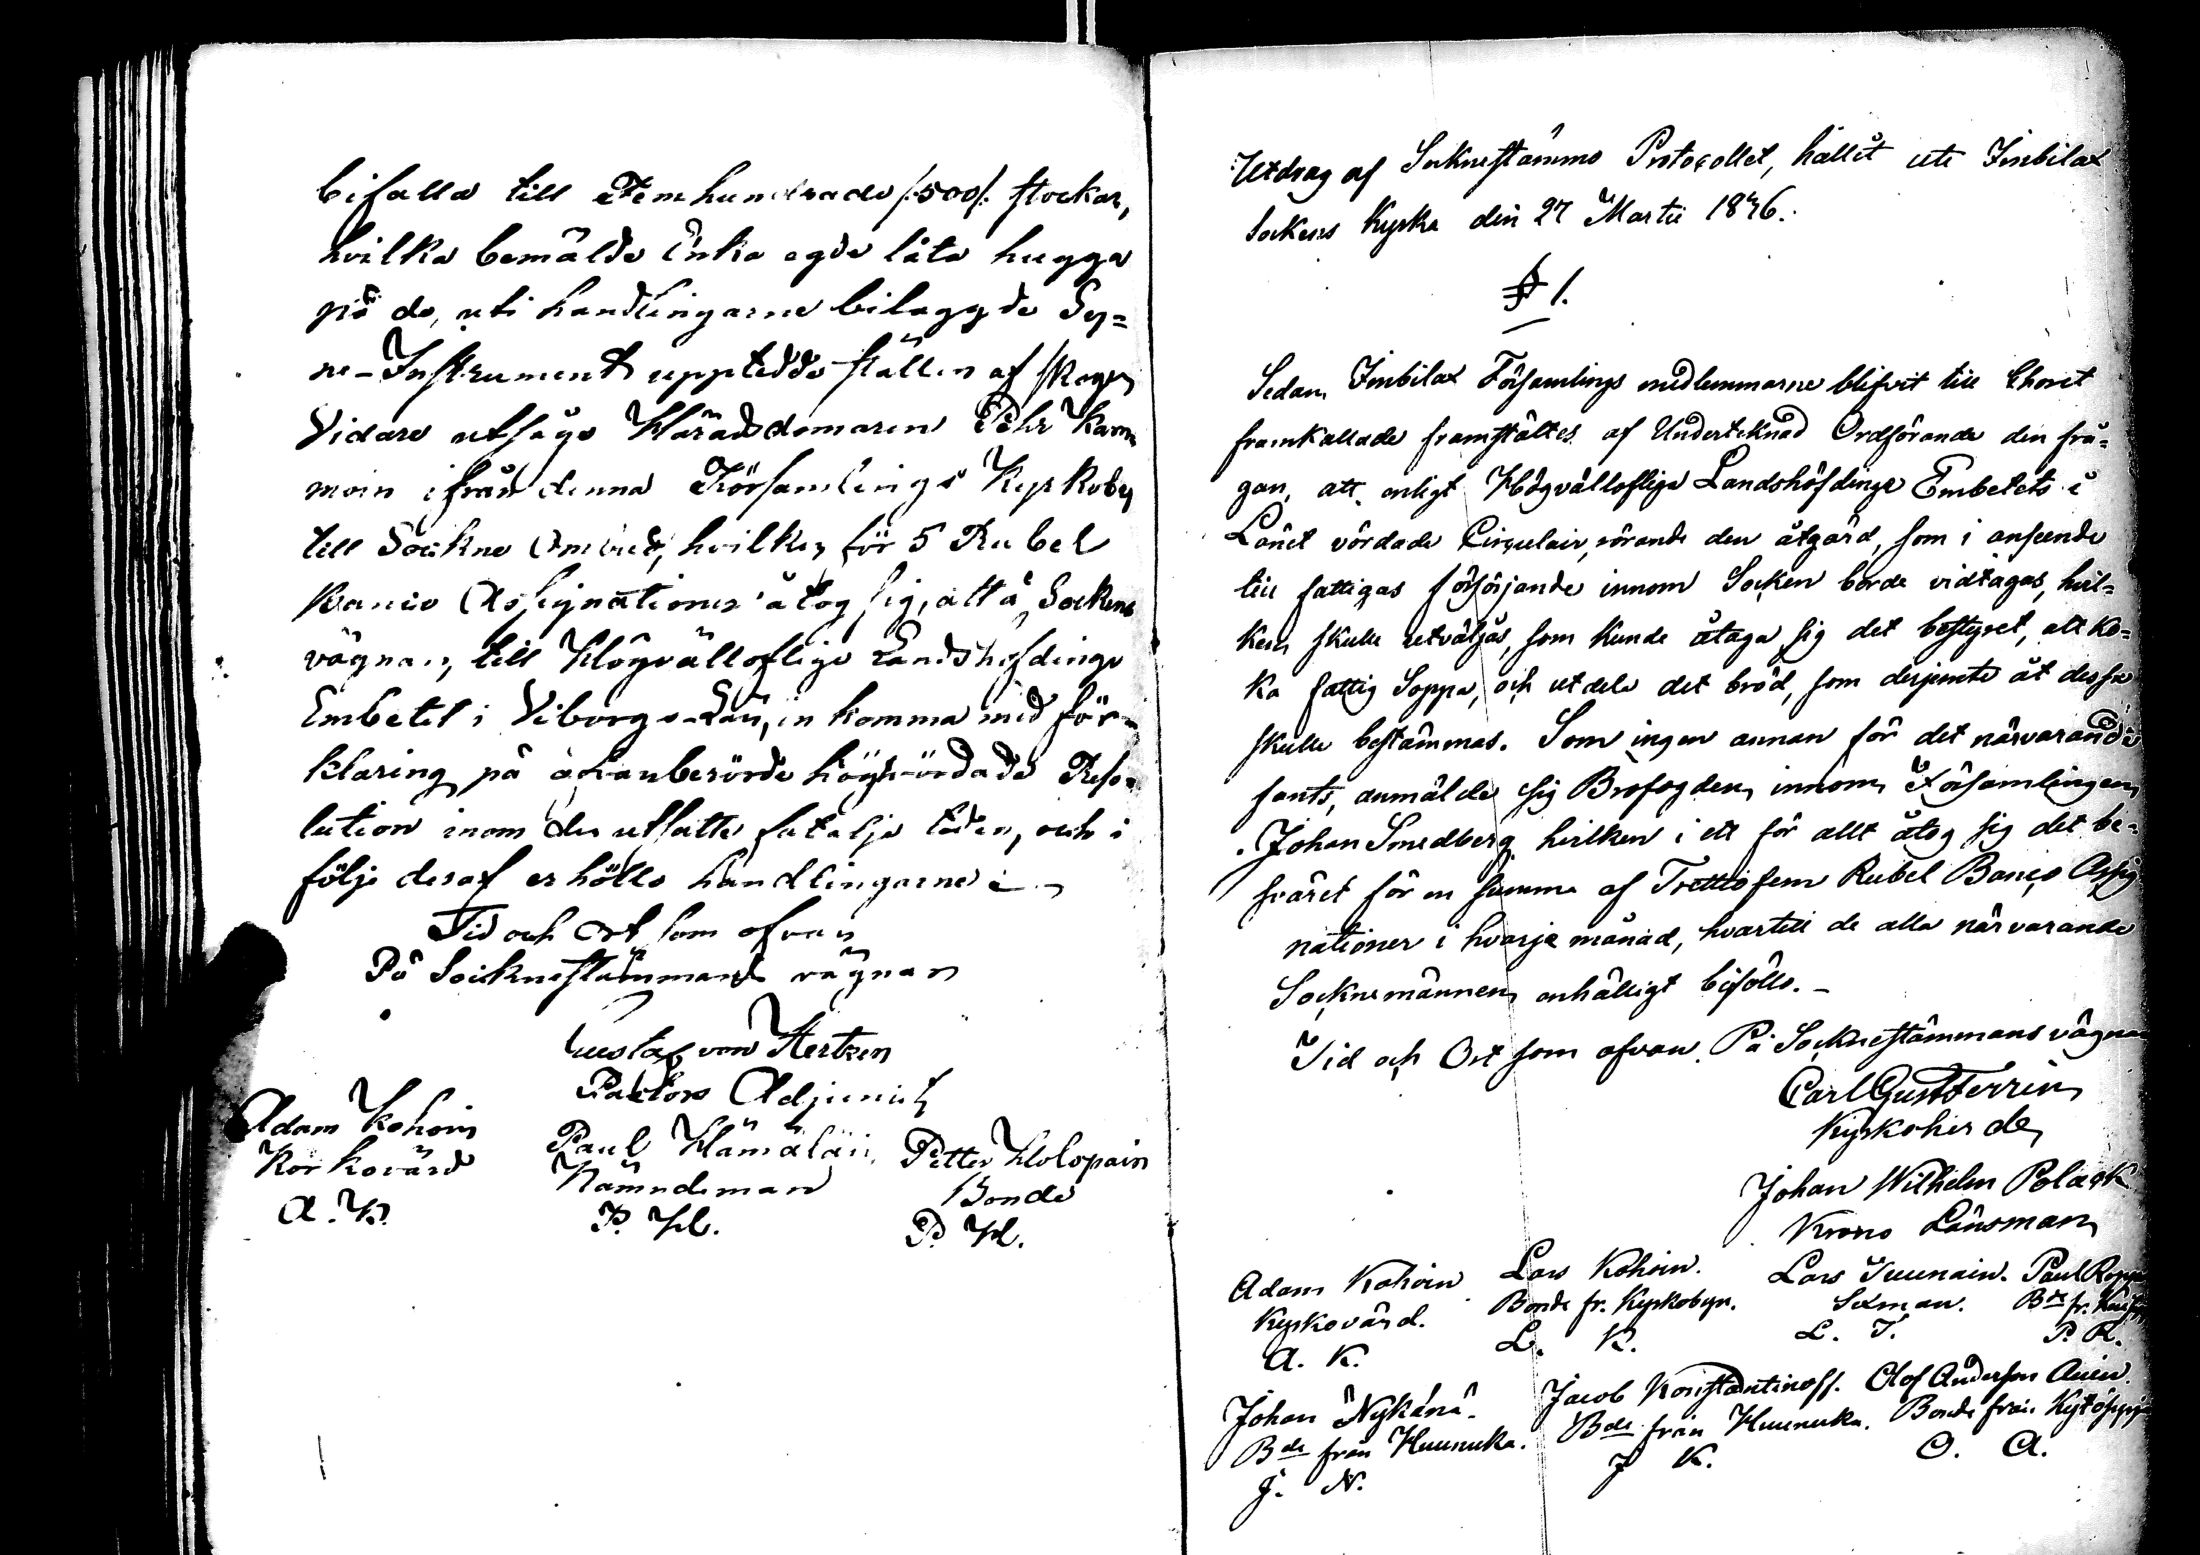 bifalla till Femhundrade /:500/: stockar,
hvilka bemälde Enka egde låta hugga
på de, uti handlingarne bilaggde Sy=
ne-Instrument upptedde ställen af skogen
Vidare utsågs Häradsdomaren Pehr
moin ifrån denna Församlings Kyrkoby
till Sockne Ombud, hvilken för 5 Rubel
Banco Assignationer åtog sig, att å Sockens
vägnar, till Högvälloflige Landshöfdinge
Embetet i Viborgs-Län, in komma med för=
klaring på ofvanberörde högvördade Reso=
lution inom den utsatte fatalje tiden, och i
följe deraf erhölls handlingarne
Tid och Ort som ofvan
På Socknestämmans vägnar
Gustaf von Hertzen
Pastors Adjunct
Adam Kohoin
Kyrkovärd
A. K.
Paul Hämäläin
Nämndeman
P. H.
Petter Holopain
Bonde
P. H.
Utdrag af Socknestämmo Protocollet, hållit uti Imbilax
Sockens Kyrka den 27 Martii 1846.
§ 1.
Sedan Imbilax Församlings medlemmarne blifvit till Choret
framkallade framstältes af Undertecknad Ordförande den frå=
gan, att enligt Högvälloflige Landshöfdinge Embetets i
Länet vördade Circulair, rörande den åtgärd, som i anseende
till fattigas försörjande innom Socken borde vidtagas, hvil=
ken skulle utväljas, som kunde åtaga sig det bestyret, att ko=
ka fattig Soppa, och utdela det bröd, som derjemte åt dessa
skulle bestämmas. Som ingen annan för det närvarande
fants, anmälde sig Brofogden innom Församlingen
Johan Smedberg hvilken i ett för allt åtog sig det be=
sväret för en summa af Trettiofem Rubel Banco Assig
nationer i hvarje månad, hvartill de alla närvarande
Socknemännen enhälligt biföllo. –
Tid och Ort som ofvan. På Socknestämmans vägnar
Carl Gust Ferrin
Kyrkoherde
Johan Wilhelm Polack
Krono Länsman
Adam Kohoin
Kyrkovärd.
A. K.
Lars Kohoin.
Bonde fr. Kyrkobyn.
L. K.
Lars Immain.
Sexman.
L. I.
Paul
Bde fr.
P. R.
Johan Nykänä.
Bde från Huunuka.
J. N.
Jacob Konstantinoff.
Bde från Huunuka.
J K.
Olof Andersson
Bonde från
O. A.